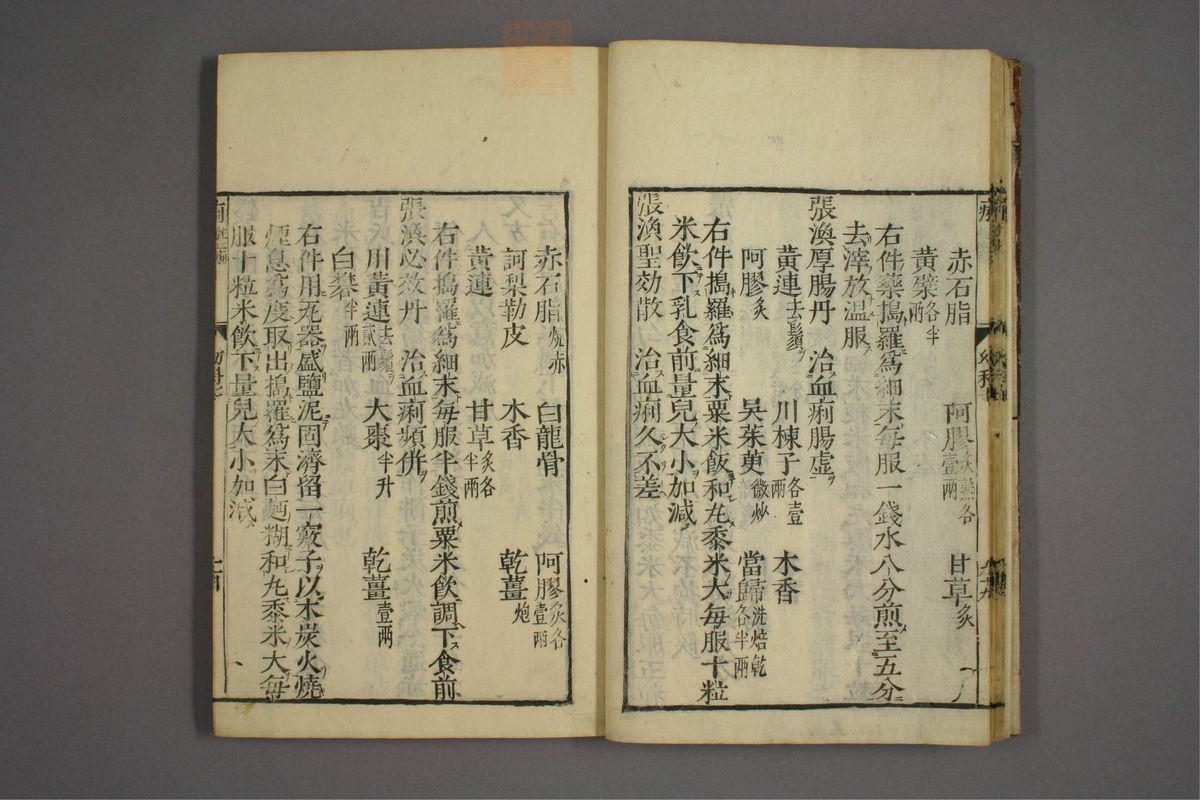 赤石脂　阿膠炙燕各壹兩　甘草炙
黄蘗各半兩
右件藥搗羅爲細末每服一錢水八分煎至五分
去滓放温服
張渙厚腸丹　治血痢腸虚
黄連去鬚　川楝子各壹兩　木香
阿膠炙　吴茱萸微炒　當歸洗焙乾各半兩
右件搗羅爲細末粟米飯和丸黍米大每服十粒
米飲下乳食前量兒大小加減
張渙聖効散　治血痢久不差
赤石脂燒赤　白龍骨　阿膠炙各壹兩
訶梨勒皮　木香　乾薑炮
黄連　甘草炙各半兩
右件搗羅爲細末每服半錢煎粟米飲調下食前
張渙必效丹　治血痢頻併
川黄連去鬚貳兩　大棗半升　乾薑壹兩
白礬半兩
右件用瓦器盛鹽泥固濟留一竅子以木炭火燒
煙息爲度取出搗羅爲末白麪糊和丸黍米大每
服十粒米飲下量兒大小加減